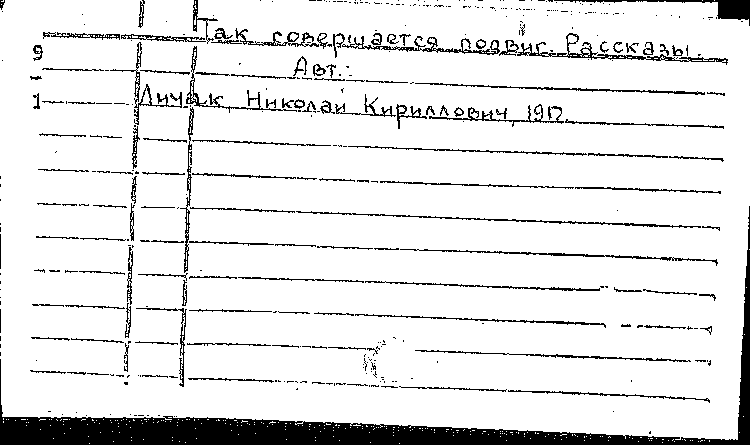 Так совершается подвиг. Рассказы.
9
Авт.:
1 Личак, Николай Кириллович, 1912.